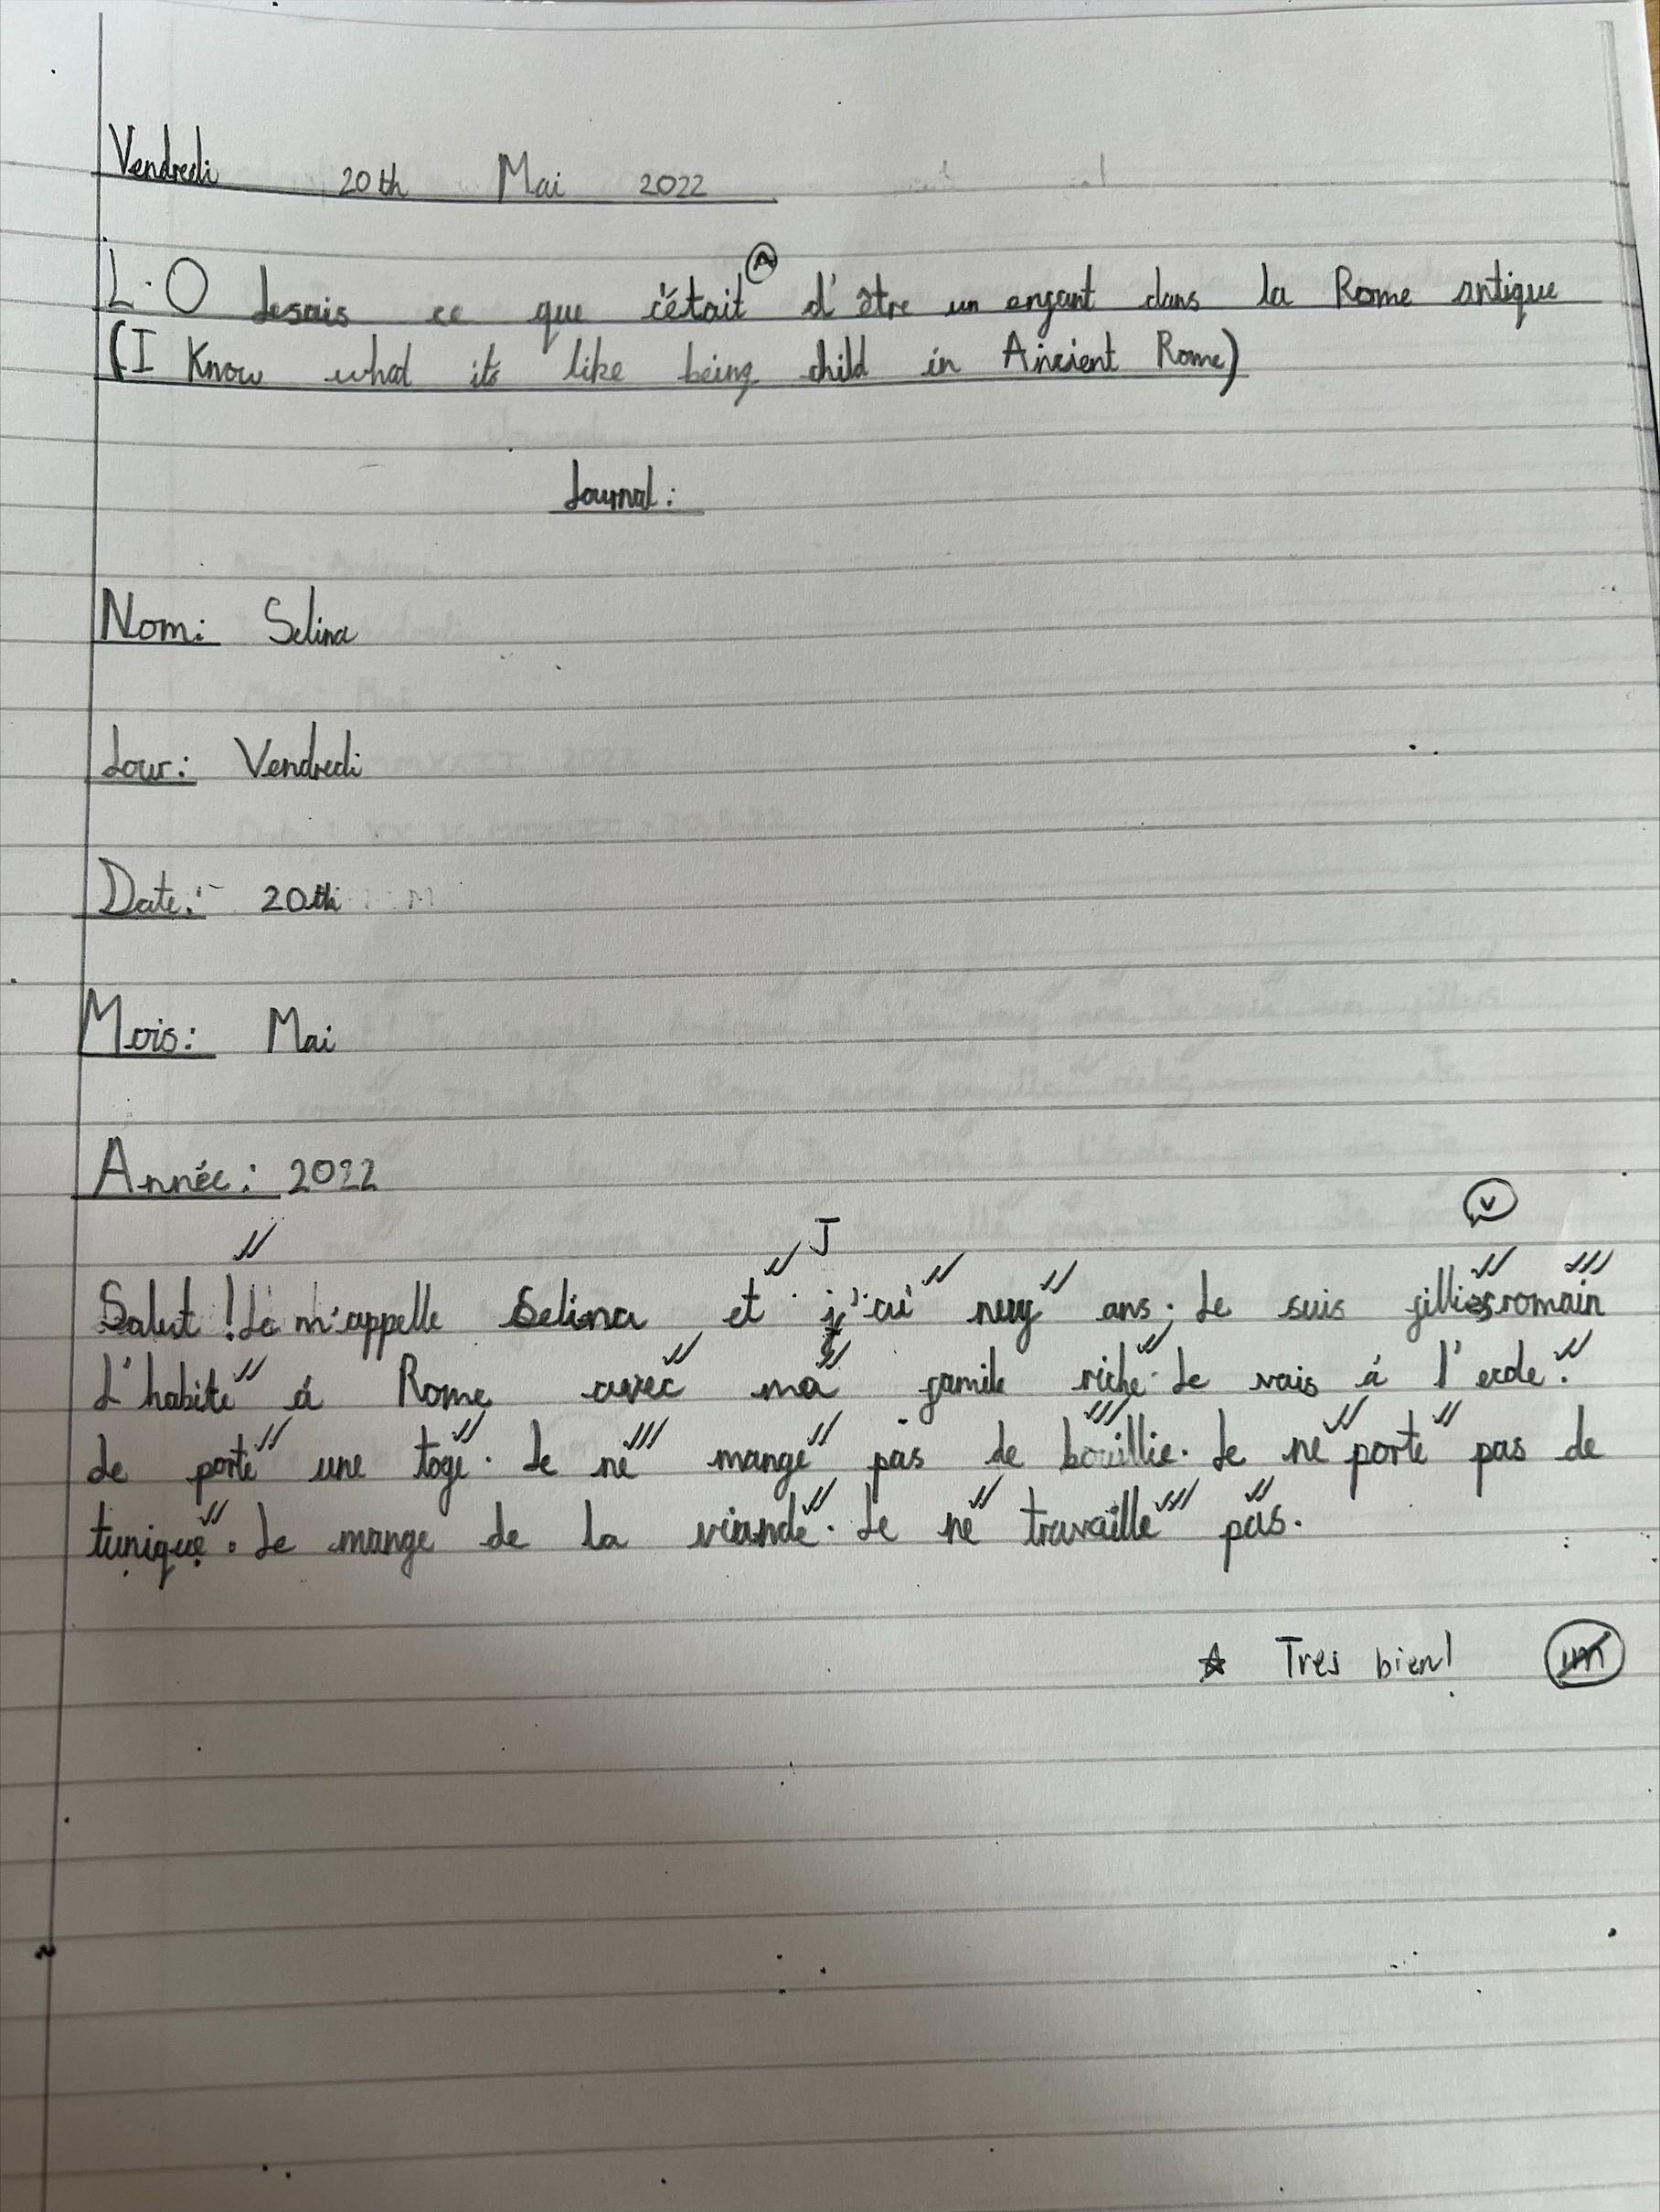 Vendredi 20th Mai 2022
A
L.O Je sais ce que c'était d'être un enfant dans la Rome antique
(I Know what its like being child in Ancient Rome)
Journal:
Nom: Selina
Jour: Vendredi
Date: 20th
Mois: Mai
Année: 2022
J
v
Salut! Je m'appelle Selina et j'ai neuf ans. Je suis romain
J'habite á Rome avec ma famile riche. Je vais á l'ecole.
Je porte une toge. Je ne mange pas de bouillie. Je ne porte pas de
tunique. Je mange de la viande. Je ne travaille pas.
Tres bien!